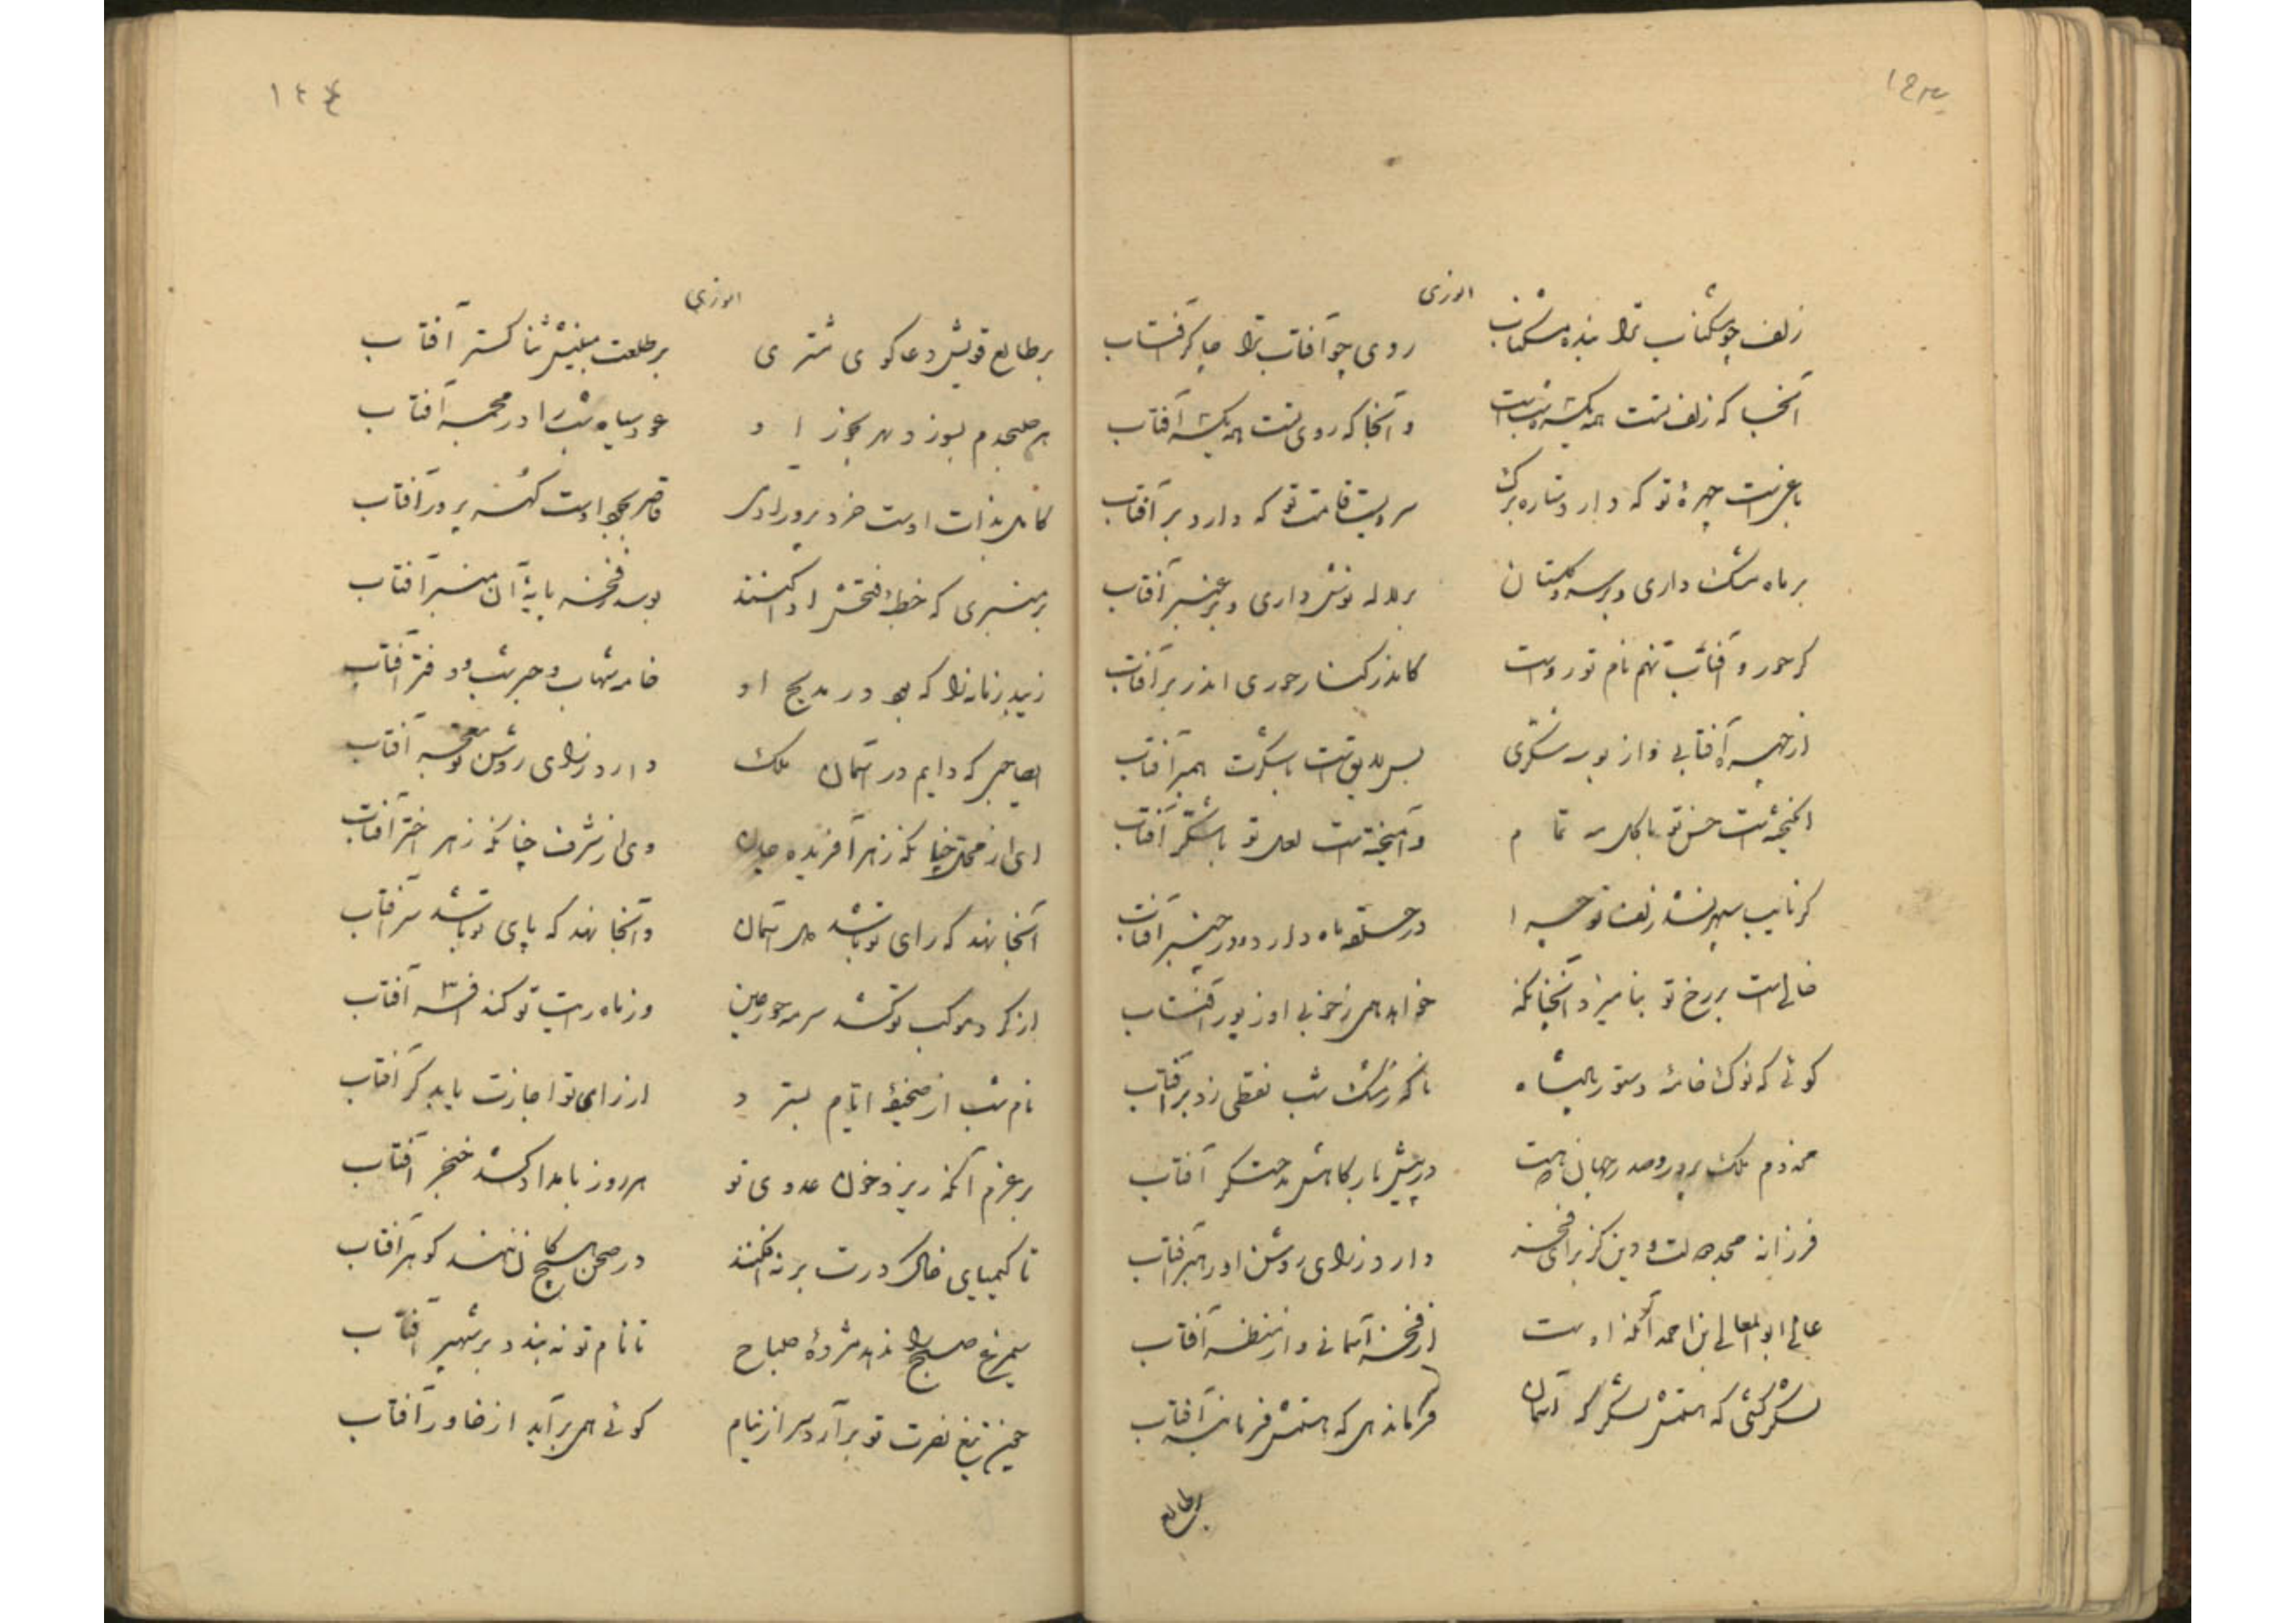 انوری
زلف چو مشکناب ترا بنده مشکناب    روی چو آفتاب ترا چاکر آفتاب
آنجا که زلف تست همه یکسره شب است    وآنجا که روی تست همه یکسره آفتاب
باغیست چهرهٔ تو که دارد ستاره برگ    سرویست قامت تو که دارد بر آفتاب
بر ماه مشک داری و بر سرو گلستان    بر لاله نوش داری و بر عنبر آفتاب
گر حور و آفتاب نهم نام تو رواست    کاندر کنار حوری اندر بر آفتاب
از چهره آفتابی و از بوسه شکری    بس لایق است با شکرت همبر آفتاب
انگیخته است حسن تو با گل مه تمام    وآمیخته است لعل تو با شکر آفتاب
گر نایب سپهر نشد زلف تو چرا    در حلقه ماه دارد و در چنبر آفتاب
خالی است بر رخ تو بنامیزد آنچنانکه    خواهد همی ز خوبی او زیور آفتاب
گوئی که نوک خامهٔ دستور پادشاه    ناگه ز مشک شب نقطی زد بر آفتاب
مخدوم ملک پرور و صدر جهان که هست    در پیش بارگاهش خدمتگر آفتاب
فرزانه مجد دولت و دین کز برای فخر    دارد ز رای روشن او رهبر آفتاب
عالی ابوالمعالی بن احمد آنکه اوست    از فخر آسمانی و از منظر آفتاب
لشکرکشی که هستش لشکرگه آسمان    فرماندهی که هستش فرمانبر آفتاب
بر طالع
انوری
بر طالع قویش دعاگوی مشتری    بر طلعت مبینش ثناگستر آفتاب
هر صبحدم بسوزد بهر بخور او    عود سیاه شب را در مجمر آفتاب
کامل بذات اوست خرد پرور آدمی    قاصر بجود اوست گهر پرور آفتاب
بر منبری که خطبهٔ فتحش ادا کنند    بوسد ز فخر پایهٔ آن منبر آفتاب
زیبد زمانه را که بود در مدیح او    خامه شهاب و حبر شب و دفتر آفتاب
ای صاحبی که دایم در آسمان ملک    دارد ز رای روشن تو مفخر آفتاب
ای از محل چنانکه ز هر آفریده جان    وی از شرف چنانکه ز هر اختر آفتاب
آنجا نهد که رای تو باشد دل آسمان    وآنجا نهد که پای تو باشد سر آفتاب
از گرد موکب تو کشد سرمه حور عین    وز ماه رایت تو کند افسر آفتاب
نام شب از صحیفهٔ ایام بسترد    از رای تو اجازت یابد گر آفتاب
بر عزم آنکه ریزد خون عدوی تو    هر روز بامداد کشد خنجر آفتاب
تا کیمیای خاک درت بر نه افکند    در صحن هیچ کان ننهد گوهر آفتاب
سیمرغ صبح را ندهد مژدهٔ صباح    تا نام تو نه بندد بر شهپر آفتاب
چون تیغ نصرت تو برآرد سر از نیام    گوئی همی برآید از خاور آفتاب